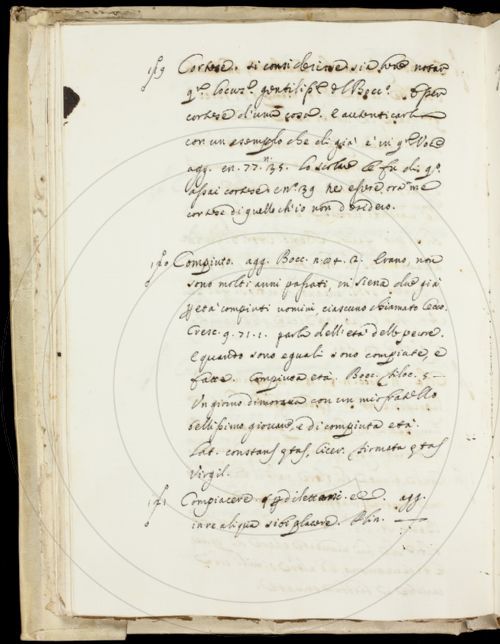 Cortese. si consideri se sia bene notar
q.ª locuz.e gentiliss.e del Bocc.
cortese d'una cosa. e autenticarla
con un esempio che di già è in q.ª Voce
agg. en. 77. 35. lo scolare
assai cortese en. 39 ne essere ora me
cortese di quello ch'io non desidero.
Compiuto. agg. Bocc. n. 84. 2. Erano, non
sono molti anni passati, in Siena due già
p età compiuti uomini ciascuno chiamato Cecco.
Cresc. 9. 71. 1. parla dell'età delle pecore.
e quando sono eguali sono compiute, e
fatte. Compiuta età. Bocc. Filoc. 5
Un giorno dimorava con un mio fratello
bellissimo giovane, e di compiuta età.
Lat. constans ętas, Cicer. firmata ętas
Virgil.
Compiacere agg.
in re aliqua sibi placere. Plin.